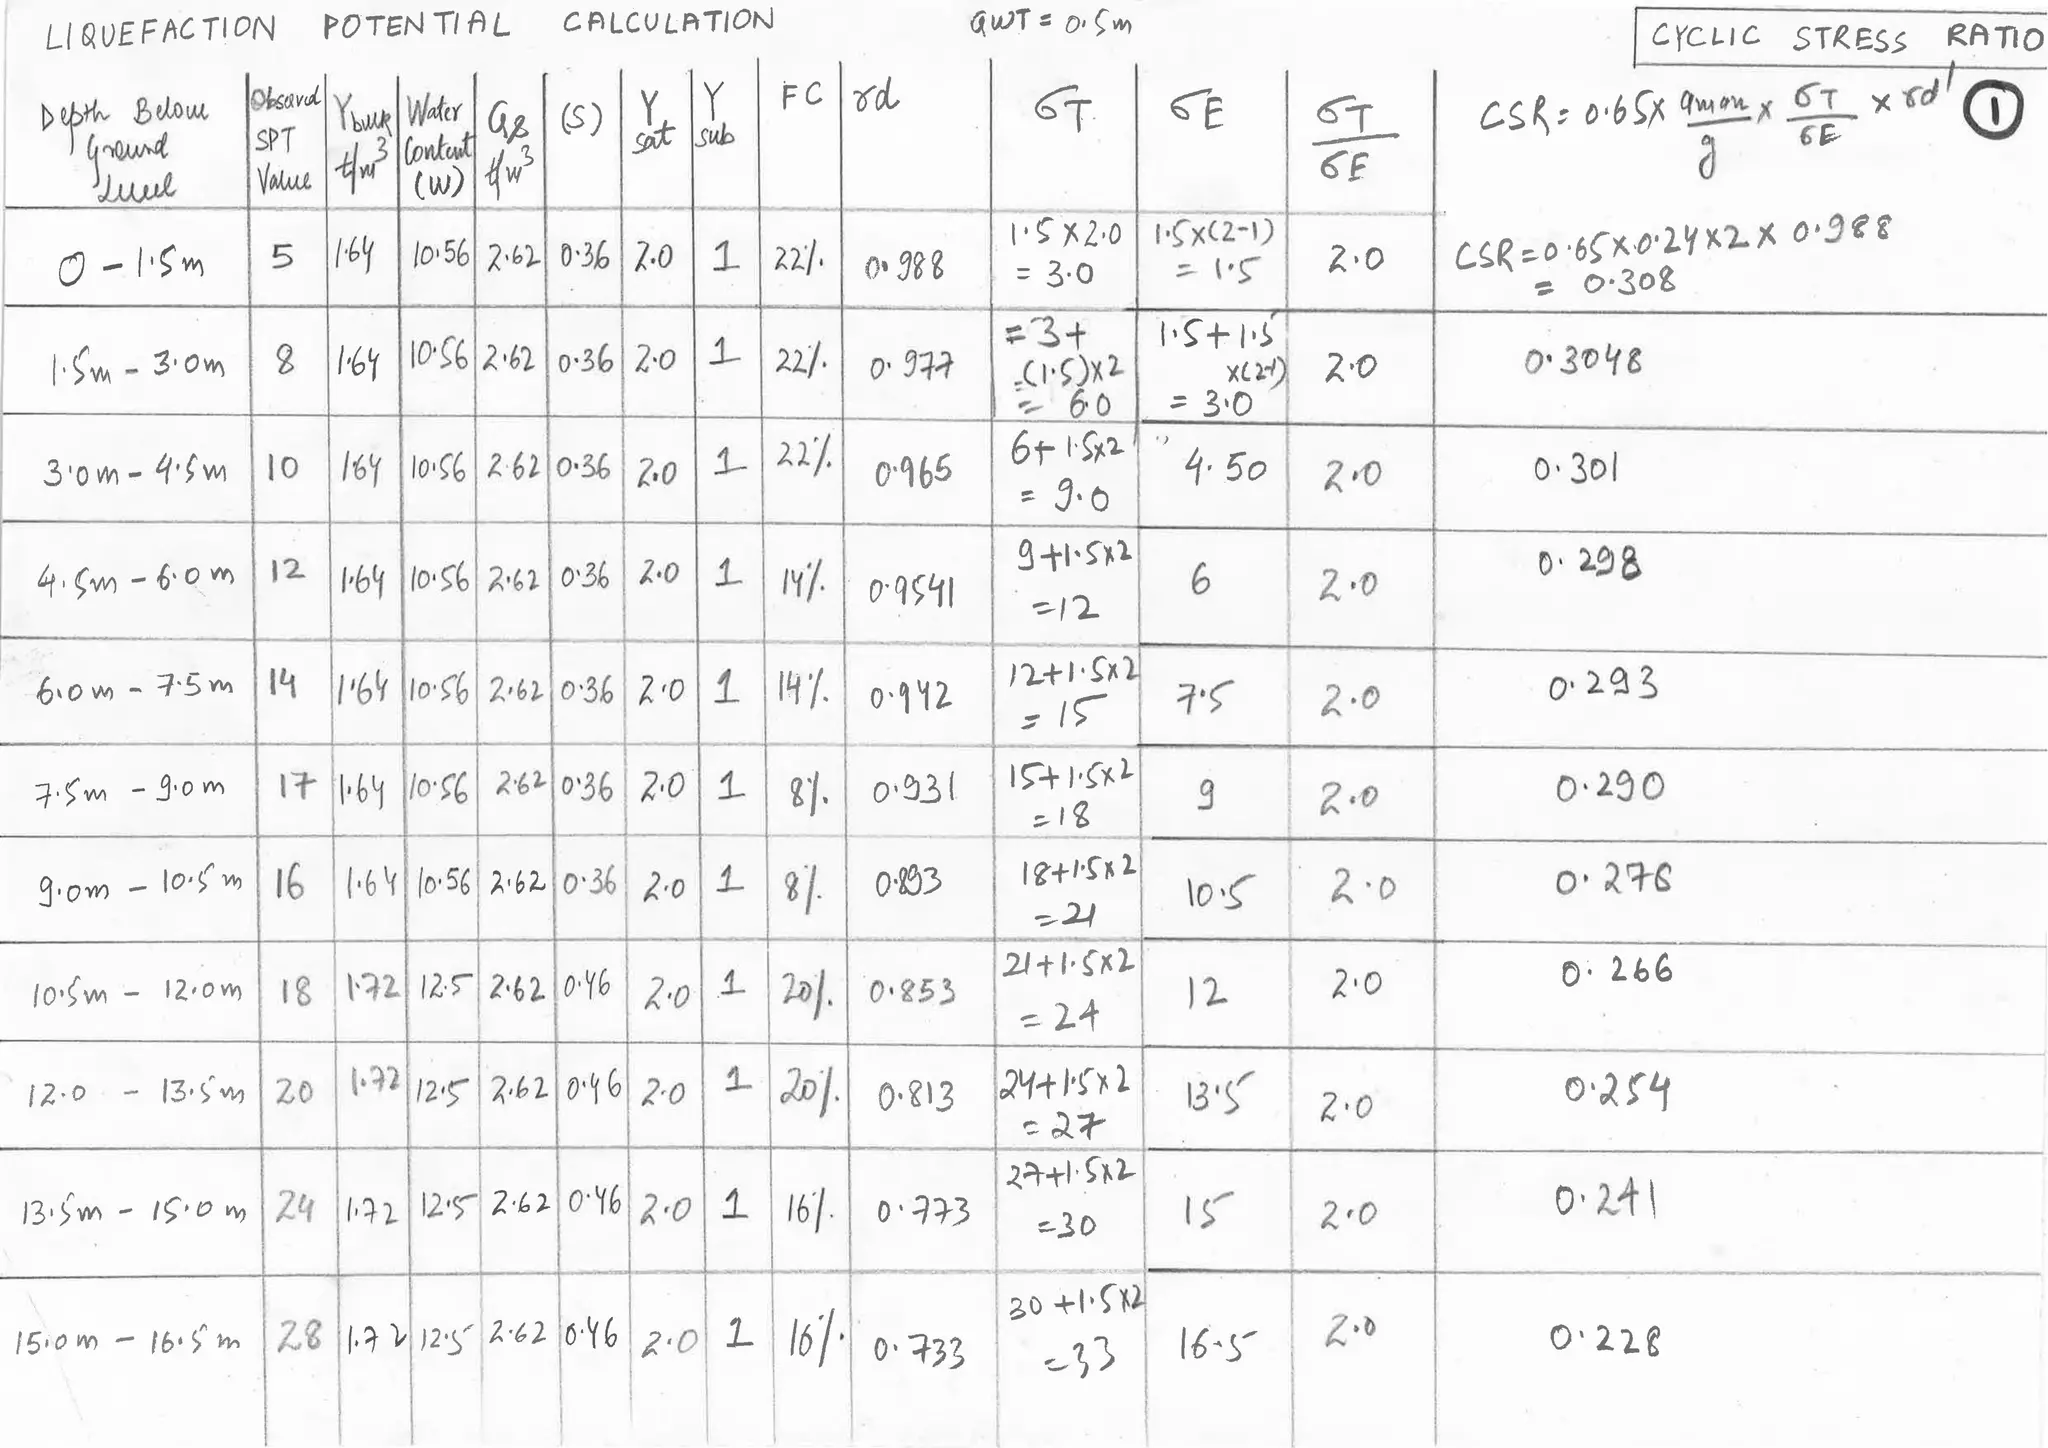 LIQUEFACTION POTENTIAL CALCULATION GWT = 0.5m
CYCLIC STRESS RATIO
Depth Below Ground Level | Observed SPT Value | γbulk t/m³ | Water Content (W) | Gs t/m³ | (S) | γ sat | γ sub | FC | rd | σT | σE | σT/σE | CSR = 0.65 x amax/g x σT/σE x rd ①
0 - 1.5m | 5 | 1.64 | 10.56 | 2.62 | 0.36 | 2.0 | 1 | 22% | 0.988 | 1.5 X 2.0 = 3.0 | 1.5x(2-1) = 1.5 | 2.0 | CSR = 0.65 x 0.24 x 2 x 0.988 = 0.308
1.5m - 3.0m | 8 | 1.64 | 10.56 | 2.62 | 0.36 | 2.0 | 1 | 22% | 0.977 | = 3 + (1.5)x2 = 6.0 | 1.5 + 1.5 x(2-1) = 3.0 | 2.0 | 0.3048
3.0m - 4.5m | 10 | 1.64 | 10.56 | 2.62 | 0.36 | 2.0 | 1 | 22% | 0.965 | 6 + 1.5x2 = 9.0 | 4.50 | 2.0 | 0.301
4.5m - 6.0m | 12 | 1.64 | 10.56 | 2.62 | 0.36 | 2.0 | 1 | 14% | 0.9541 | 9 + 1.5x2 = 12 | 6 | 2.0 | 0.298
6.0m - 7.5m | 14 | 1.64 | 10.56 | 2.62 | 0.36 | 2.0 | 1 | 14% | 0.942 | 12 + 1.5x2 = 15 | 7.5 | 2.0 | 0.293
7.5m - 9.0m | 17 | 1.64 | 10.56 | 2.62 | 0.36 | 2.0 | 1 | 8% | 0.931 | 15 + 1.5x2 = 18 | 9 | 2.0 | 0.290
9.0m - 10.5m | 16 | 1.64 | 10.56 | 2.62 | 0.36 | 2.0 | 1 | 8% | 0.893 | 18 + 1.5x2 = 21 | 10.5 | 2.0 | 0.278
10.5m - 12.0m | 18 | 1.72 | 12.5 | 2.62 | 0.46 | 2.0 | 1 | 20% | 0.853 | 21 + 1.5x2 = 24 | 12 | 2.0 | 0.266
12.0 - 13.5m | 20 | 1.72 | 12.5 | 2.62 | 0.46 | 2.0 | 1 | 20% | 0.813 | 24 + 1.5x2 = 27 | 13.5 | 2.0 | 0.254
13.5m - 15.0m | 24 | 1.72 | 12.5 | 2.62 | 0.46 | 2.0 | 1 | 16% | 0.773 | 27 + 1.5x2 = 30 | 15 | 2.0 | 0.241
15.0m - 16.5m | 28 | 1.72 | 12.5 | 2.62 | 0.46 | 2.0 | 1 | 16% | 0.733 | 30 + 1.5x2 = 33 | 16.5 | 2.0 | 0.228